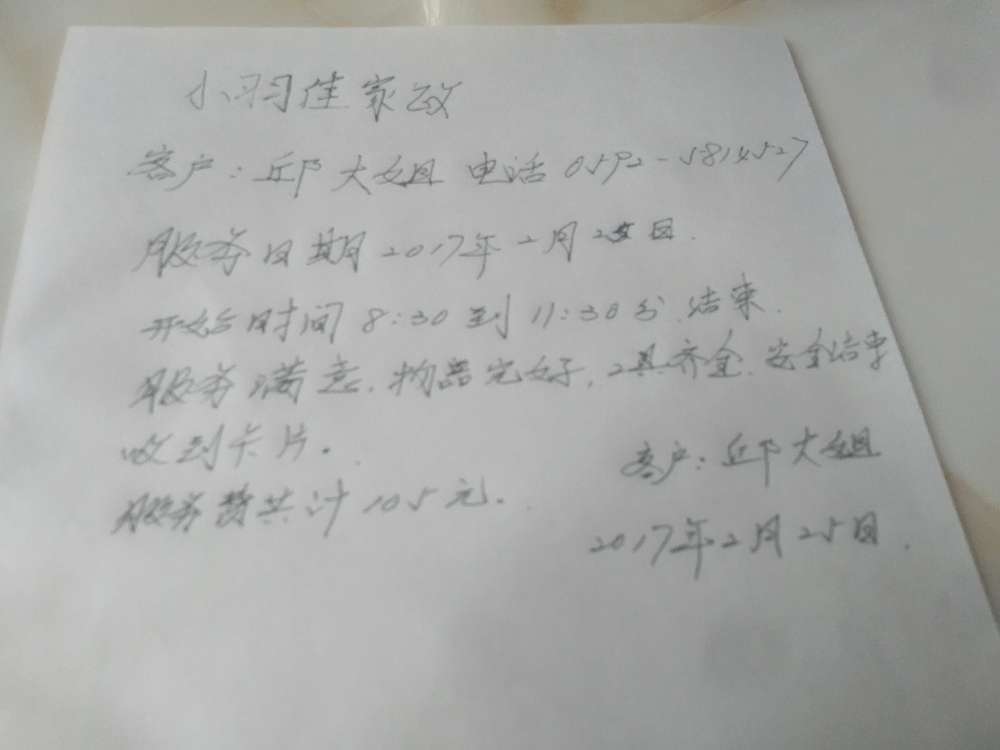 小羽佳家政
客户:邱大姐 电话0592-5814527
服务日期2017年2月25日.
开始时间8:30到11:30分.结束.
服务满意.物品完好,工具齐全.安全结束
收到卡片.
客户:邱大姐
服务费共计105元.
2017年2月25日.